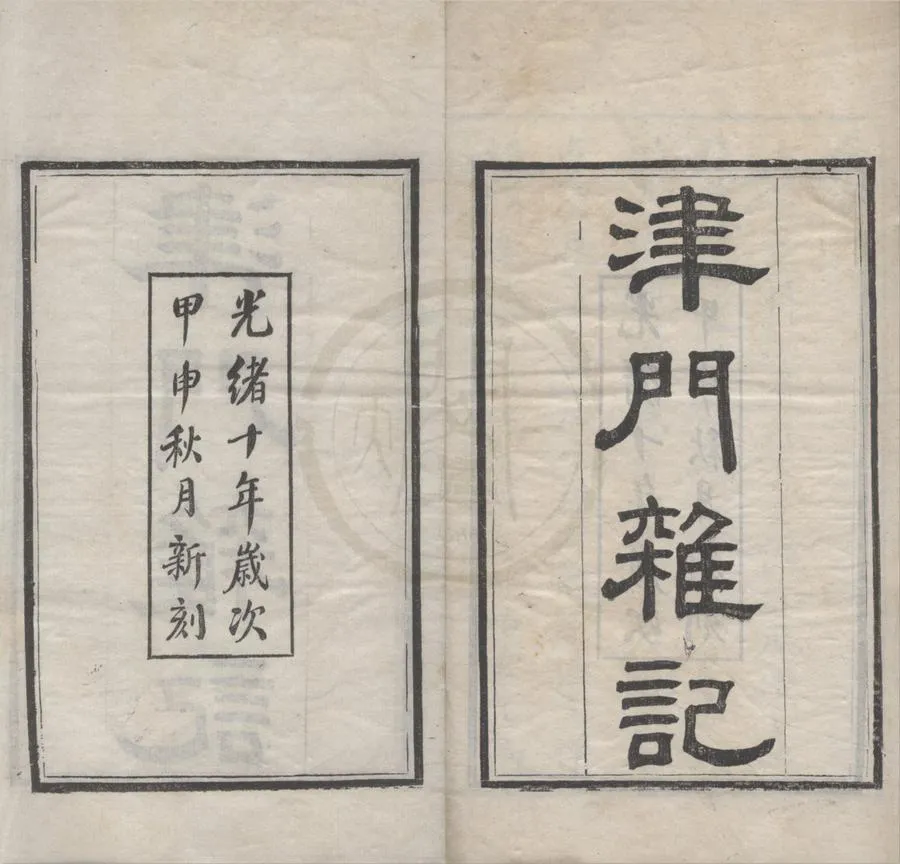 津門雜記
光緒十年歲次
甲申秋月新刻